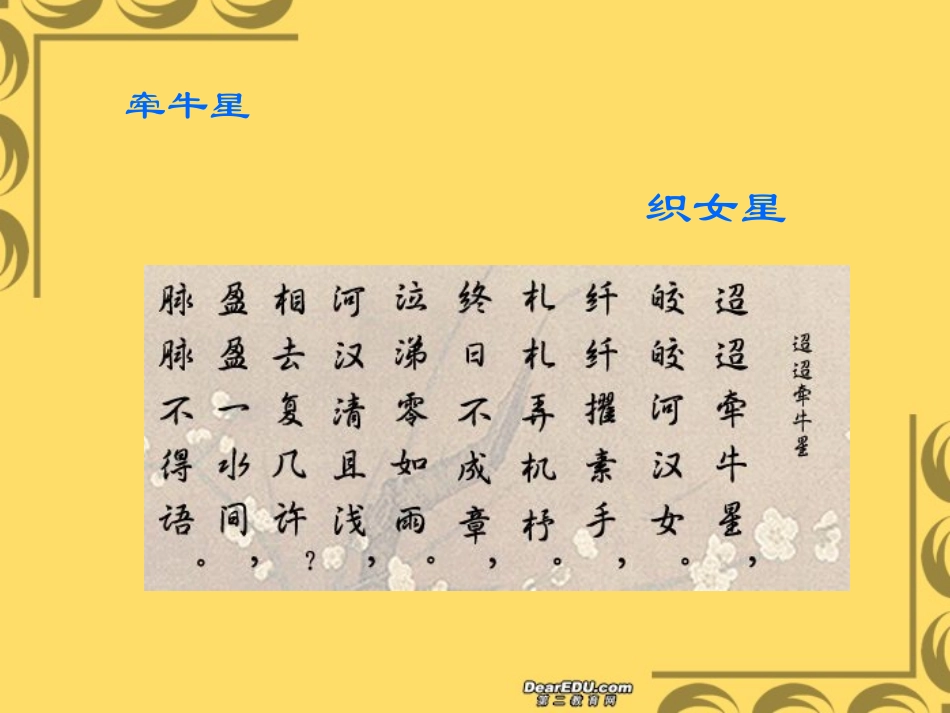 牵牛星
织女星
迢迢牵牛星
迢迢牵牛星，
皎皎河汉女。
纤纤擢素手，
札札弄机杼。
终日不成章，
泣涕零如雨。
河汉清且浅，
相去复几许？
盈盈一水间，
脉脉不得语。
DearEDU.com
第二教育网